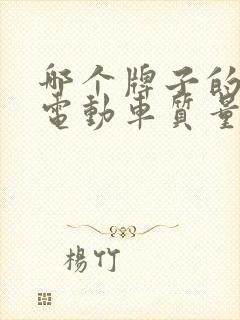 哪个牌子的
電動車質量
楊竹